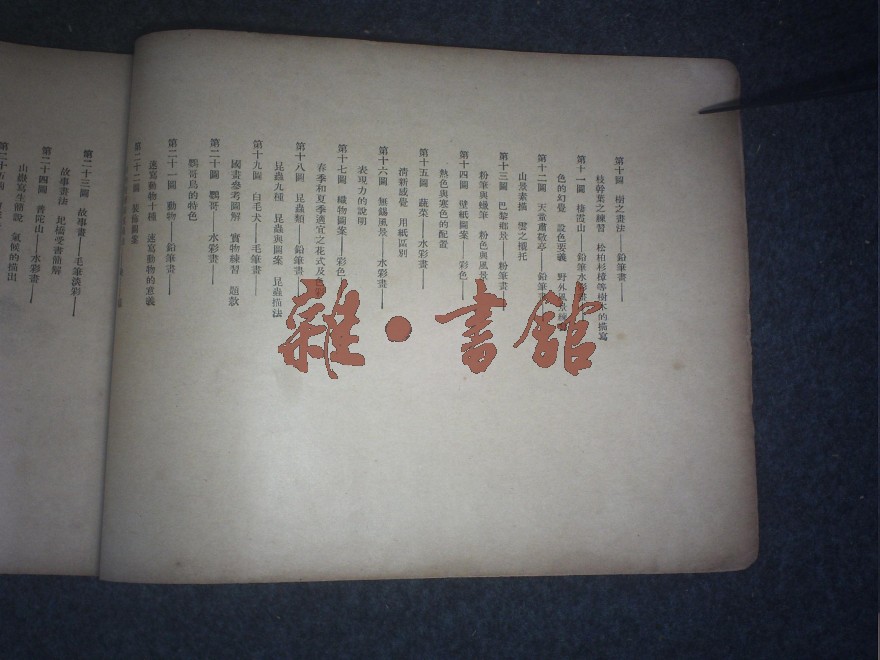 第十圖 樹之畫法——鉛筆畫——
枝幹葉之練習 松柏杉樟等樹木的描寫
第十一圖 棲霞山——鉛筆水彩畫
色的幻覺 設色要義 野外風景
第十二圖 天童肅敬亭——鉛筆
山景素描 雲之襯托
第十三圖 巴黎鄉景——粉筆畫——
粉筆與蠟筆 粉色與風景
第十四圖 壁紙圖案——彩色——
熱色與寒色的配置
第十五圖 蔬菜——水彩畫——
清新感覺 用紙區別
第十六圖 無錫風景——水彩畫——
表現力的說明
第十七圖 織物圖案——彩色
春季和夏季適宜之花式及色
第十八圖 昆蟲類——鉛筆畫
昆蟲九種 昆蟲與圖案 昆蟲描法
第十九圖 白毛犬——毛筆畫——
國畫參考圖解 實物練習 題款
第二十圖 鸚哥——水彩畫——
鸚哥鳥的特色
第二十一圖 動物——鉛筆畫——
速寫動物十種 速寫動物的意義
第二十二圖 裝飾圖案
第二十三圖 故事畫——毛筆淡彩——
故事畫法 圯橋受書簡解
第二十四圖 普陀山——水彩畫——
山嶽寫生簡說 氣候的描出
第二十五圖
雜·書館